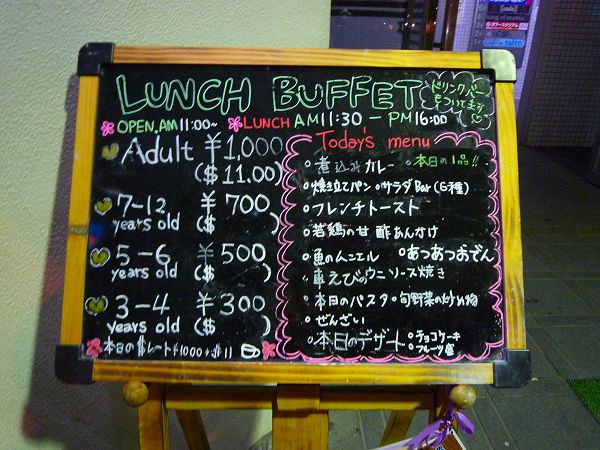 LUNCH BUFFET
ドリンクバー
もついてます
OPEN.AM 11:00~
LUNCH AM 11:30 - PM 16:00
Adult ¥1,000
($ 11.00)
7-12 ¥ 700
years old ($ )
5-6 ¥ 500
years old ($ )
3-4 ¥ 300
years old ($ )
本日の$レート¥1000=$11
Today's menu
煮込みカレー
本日の1品!!
焼き立てパン サラダBar(6種)
フレンチトースト
若鶏の甘酢あんかけ
魚のムニエル あつあつおでん
車えびのウニソース焼き
本日のパスタ 旬野菜の炒め物
ぜんざい
本日のデザート
チョコケーキ
フルーツ盛
TAITO